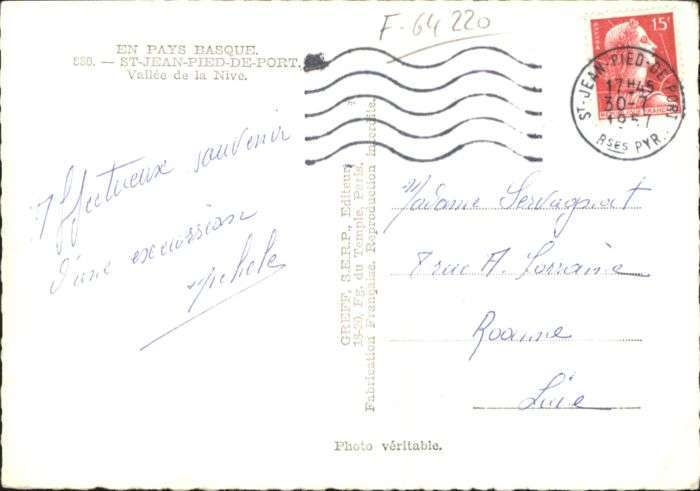 F-64 220
EN PAYS BASQUE.
530. — ST-JEAN-PIED-DE-PORT.
Vallée de la Nive.
15F
ST-JEAN-PIED-DE-PORT
17H45
30-7
1957
BSES PYR.
Affectueux souvenir
d'une excursion
Michele
GREFF, S.E.R.P., Editeur
18-20, Fg. du Temple, Paris.
Fabrication Française. Reproduction Interdite.
Madame Servagnat
7 rue A. Lorraine
Roanne
Loire
Photo véritable.